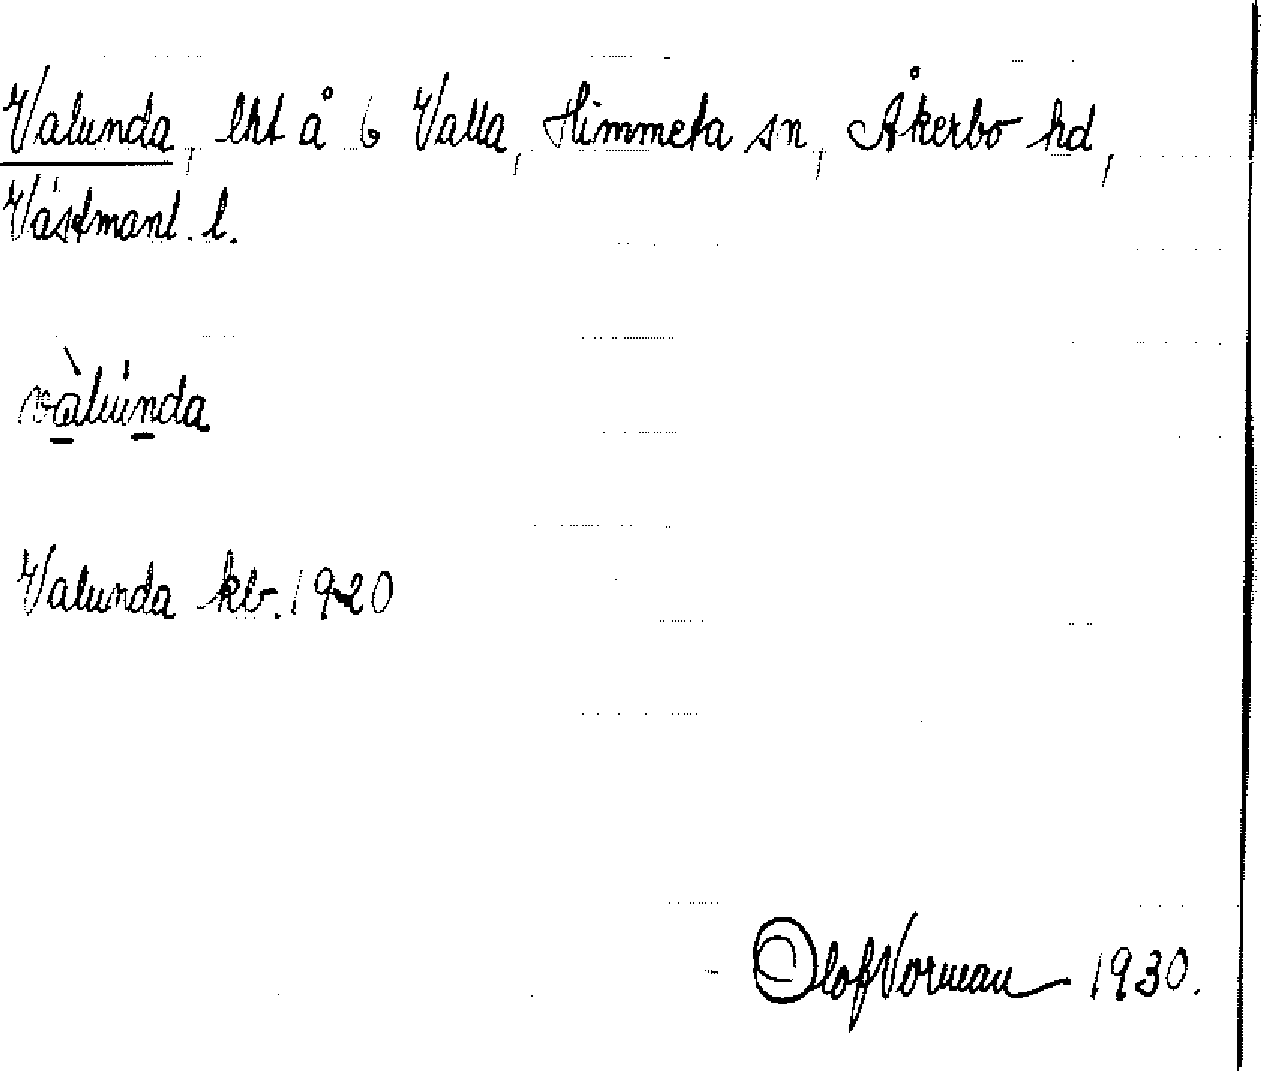 Valunda, lht å 6 Valla, Himmeta sn, Åkerbo hd,
Västmanl. l.
vàluńda
Valunda kb. 1920
Olof Vorneau 1930.